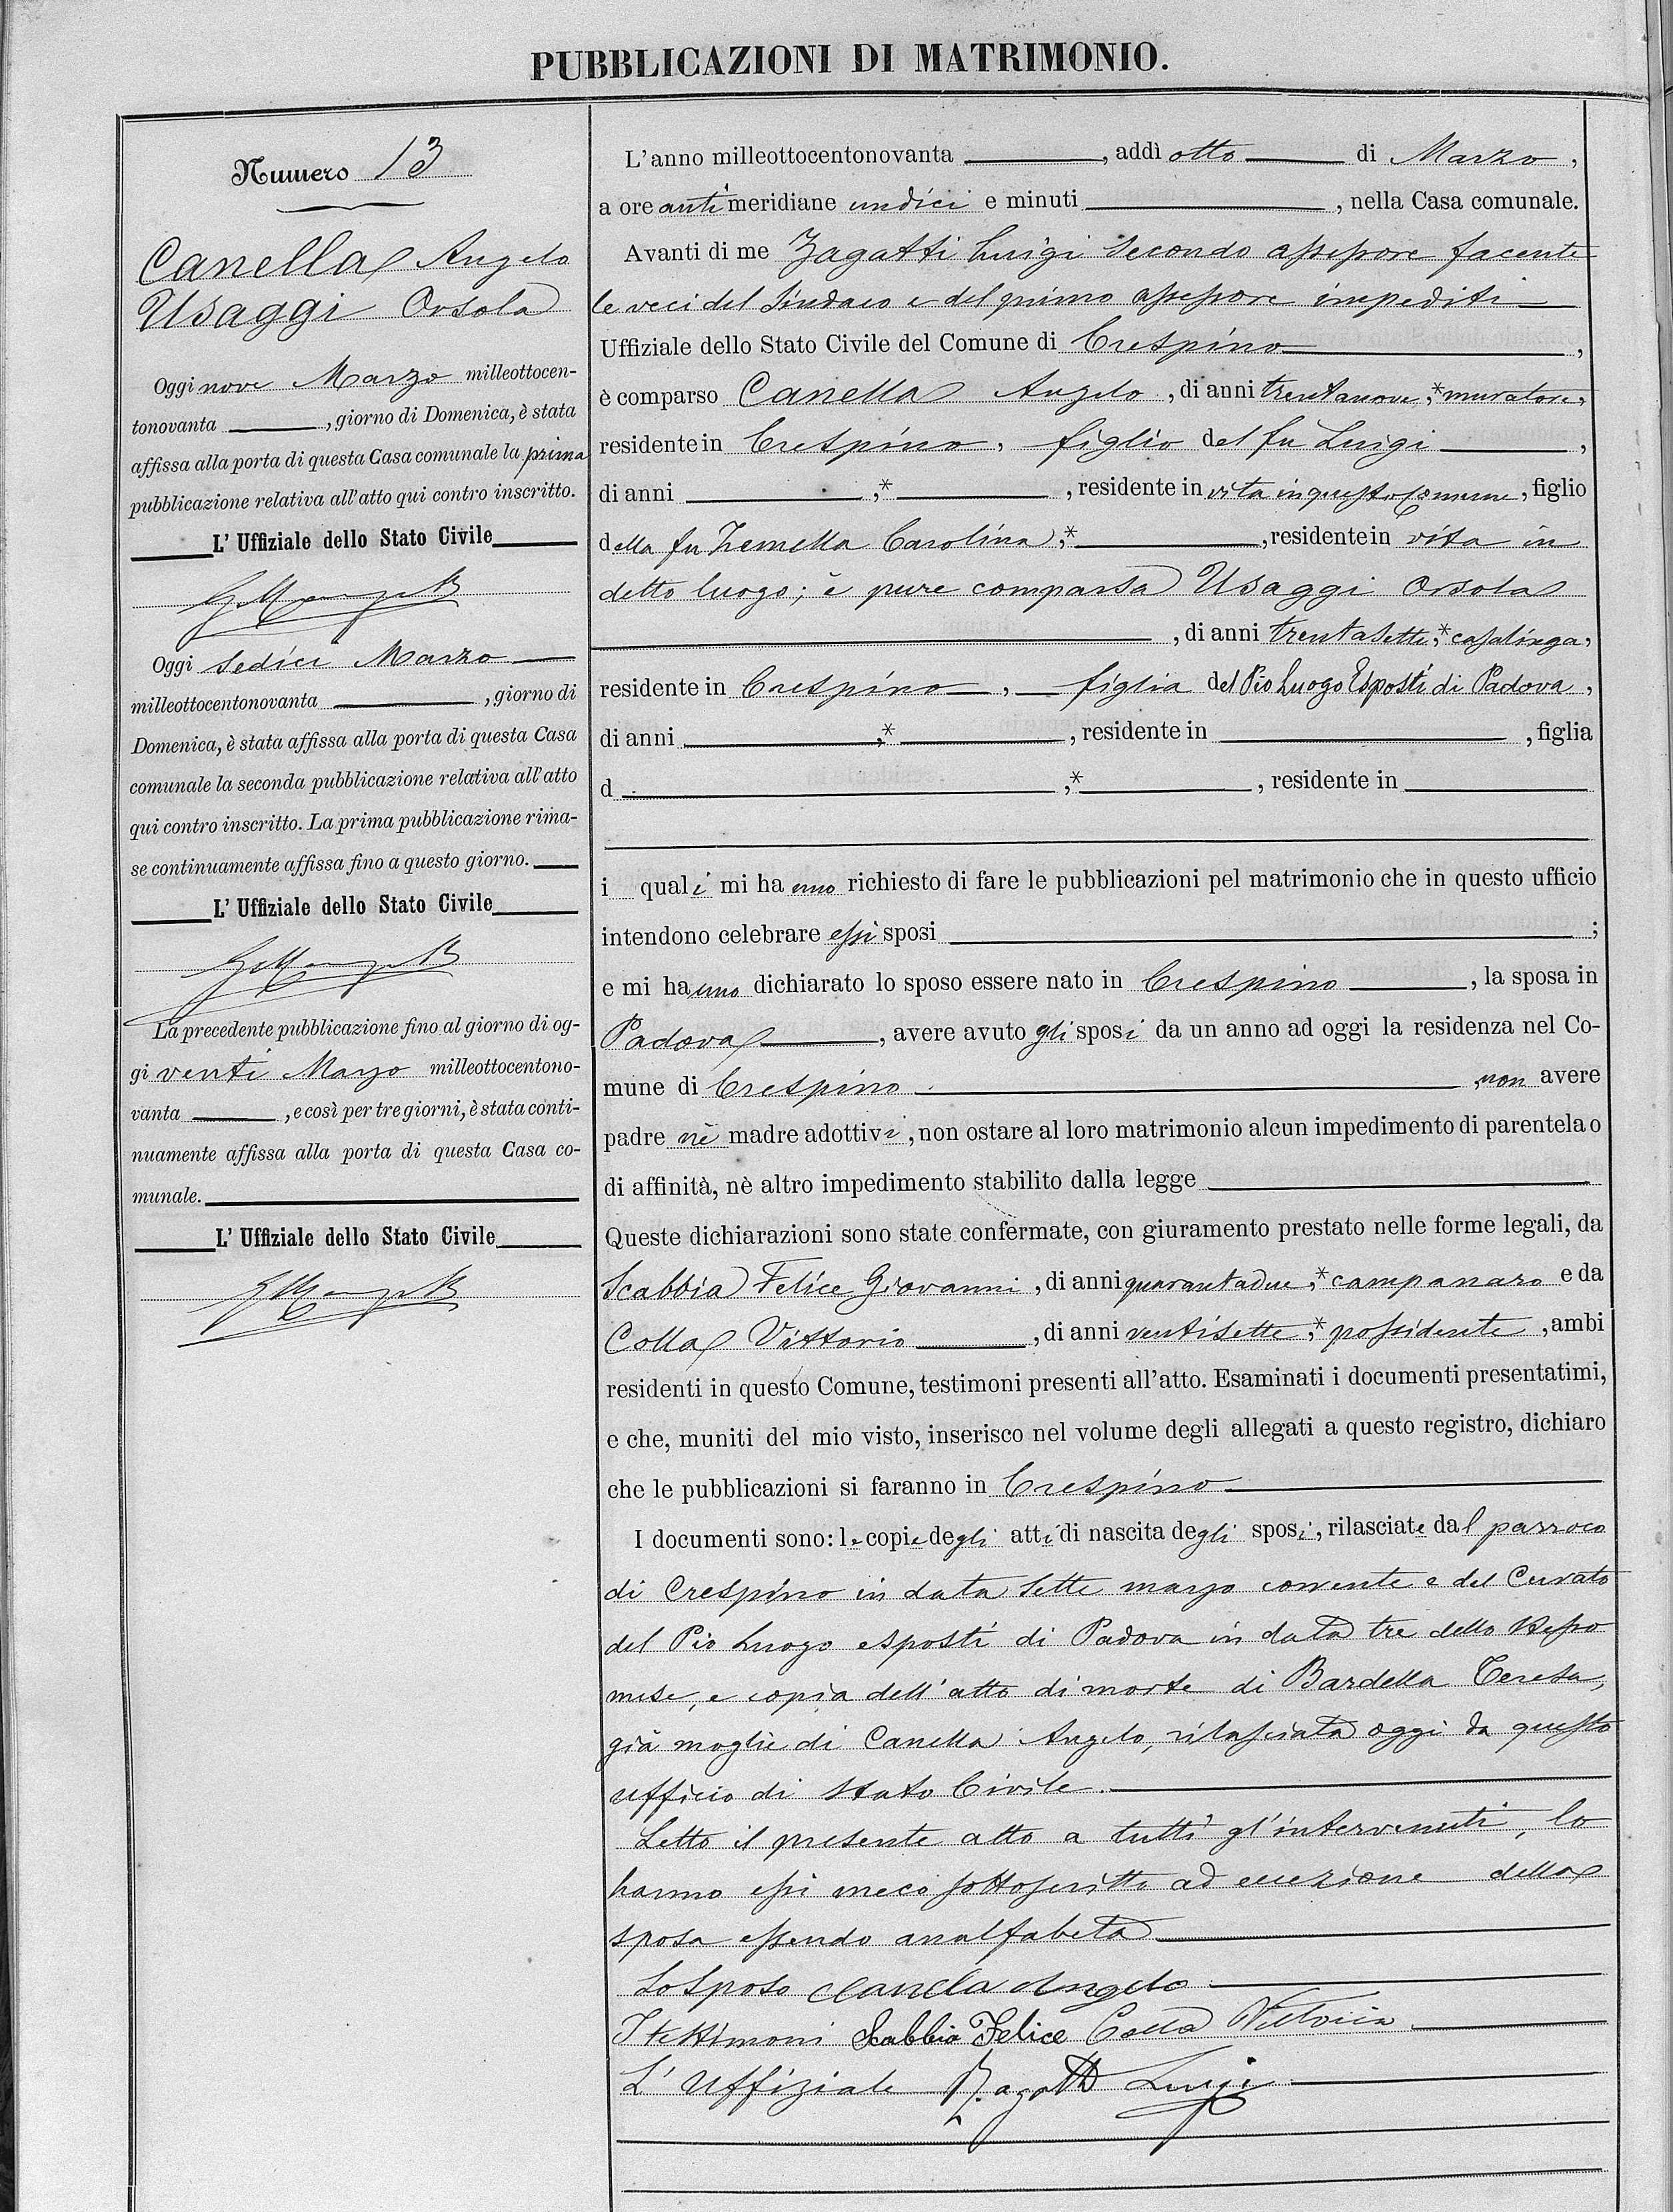 PUBBLICAZIONI DI MATRIMONIO.
Numero 13
Canella Angelo
Usaggi Orsola
Oggi nove Marzo milleottocen-
tonovanta , giorno di Domenica, è stata
affissa alla porta di questa Casa comunale la prima
pubblicazione relativa all'atto qui contro inscritto.
L' Uffiziale dello Stato Civile
Oggi sedici Marzo
milleottocentonovanta , giorno di
Domenica, è stata affissa alla porta di questa Casa
comunale la seconda pubblicazione relativa all'atto
qui contro inscritto. La prima pubblicazione rima-
se continuamente affissa fino a questo giorno.
L' Uffiziale dello Stato Civile
La precedente pubblicazione fino al giorno di og-
gi venti Marzo milleottocentono-
vanta , e così per tre giorni, è stata conti-
nuamente affissa alla porta di questa Casa co-
munale.
L' Uffiziale dello Stato Civile
L'anno milleottocentonovanta , addì otto di Marzo ,
a ore antimeridiane undici e minuti , nella Casa comunale.
Avanti di me Zagatti Luigi secondo assessore facente
le veci del Sindaco e del primo assessore impediti
Uffiziale dello Stato Civile del Comune di Crespino ,
è comparso Canella Angelo , di anni trentanove,* muratore,
residente in Crespino , figlio del fu Luigi ,
di anni ,* , residente in vita in questo Comune, figlio
della fu Zemella Carolina,* , residente in vita in
detto luogo; è pure comparsa Usaggi Orsola
, di anni trentasette,* casalinga,
residente in Crespino , figlia del Pio Luogo Esposti di Padova ,
di anni ,* , residente in , figlia
d ,* , residente in
i quali mi hanno richiesto di fare le pubblicazioni pel matrimonio che in questo ufficio
intendono celebrare essi sposi ;
e mi hanno dichiarato lo sposo essere nato in Crespino , la sposa in
Padova , avere avuto gli sposi da un anno ad oggi la residenza nel Co-
mune di Crespino , non avere
padre nè madre adottivi, non ostare al loro matrimonio alcun impedimento di parentela o
di affinità, nè altro impedimento stabilito dalla legge
Queste dichiarazioni sono state confermate, con giuramento prestato nelle forme legali, da
Scabbia Felice Giovanni , di anni quarantadue,* campanaro e da
Colla Vittorio , di anni ventisette,* possidente , ambi
residenti in questo Comune, testimoni presenti all'atto. Esaminati i documenti presentatimi,
e che, muniti del mio visto, inserisco nel volume degli allegati a questo registro, dichiaro
che le pubblicazioni si faranno in Crespino
I documenti sono: le copie degli atti di nascita degli sposi, rilasciate dal parroco
di Crespino in data sette marzo corrente e del Curato
del Pio Luogo esposti di Padova in data tre dello stesso
mese, e copia dell'atto di morte di Bardella Teresa,
già moglie di Canella Angelo, rilasciata oggi da questo
ufficio di Stato Civile.
Letto il presente atto a tutti gl'intervenuti, lo
hanno essi meco sottoscritto ad eccezione della
sposa essendo analfabeta
Lo Sposo Canela Angelo
I testimoni Scabbia Felice Colla Vittorio
L' Uffiziale Zagatti Luigi